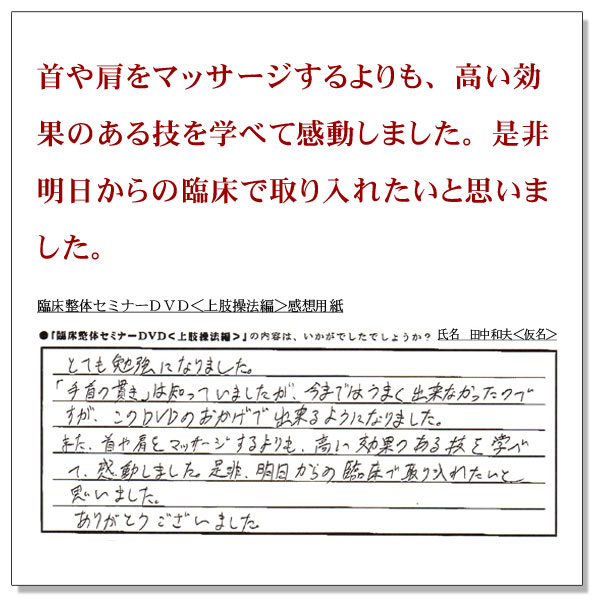 首や肩をマッサージするよりも、高い効
果のある技を学べて感動しました。是非
明日からの臨床で取り入れたいと思いま
した。
臨床整体セミナーＤＶＤ＜上肢操法編＞感想用紙
●『臨床整体セミナーDVD＜上肢操法編＞』の内容は、いかがでしたでしょうか？ 氏名　田中和夫＜仮名＞
とても勉強になりました。
「手首の貫き」は知っていましたが、今まではうまく出来なかったので
すが、このDVDのおかげで出来るようになりました。
また、首や肩をマッサージするよりも、高い効果のある技を学べ
て、感動しました。是非、明日からの臨床で取り入れたいと
思いました。
ありがとうございました。